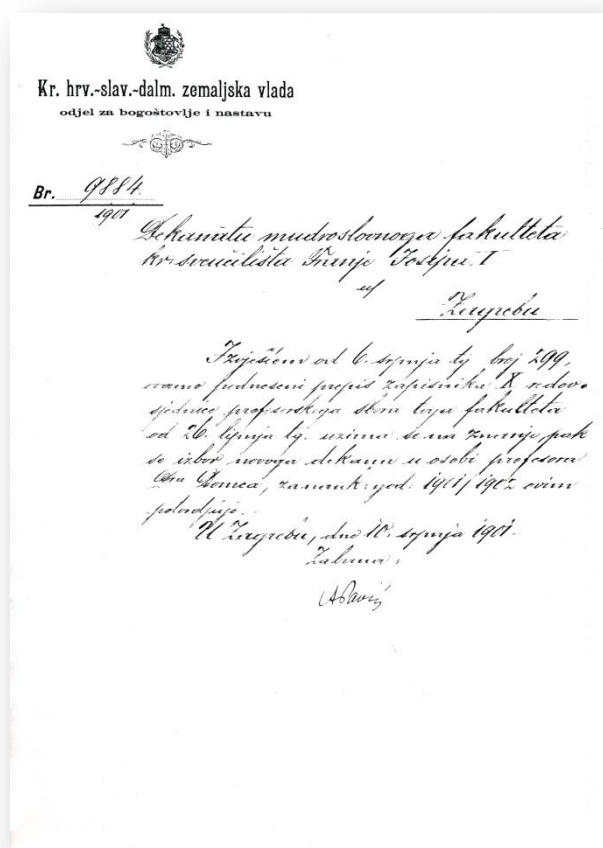 Kr. hrv.-slav.-dalm. zemaljska vlada
odjel za bogoštovlje i nastavu
Br. 9884.
1901
Dekanatu mudroslovnoga fakulteta
kr. sveučilišta Franje Josipa I
u
Zagrebu
Izvješćem od 6. srpnja tg broj 299,
ovamo podneseni prepis zapisnika X redov.
sjednice profesorskoga sbora toga fakulteta
od 26. lipnja tg. uzima se na znanje, pak
se izbor novoga dekana u osobi profesora
Dra Domca, za nauk: god: 1901/1902 ovim
potvrdjuje.
U Zagrebu, dne 10. srpnja 1901.
Za bana:
APavić